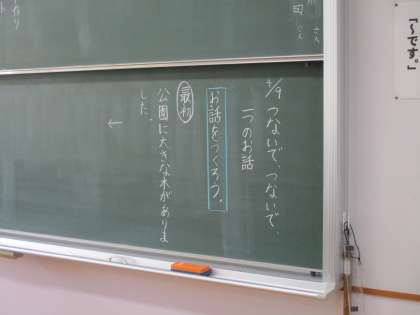 「～です。」
4/9 つないで、つないで、
一つのお話
お話をつくろう。
最初
公園に大きな木がありま
した。
←